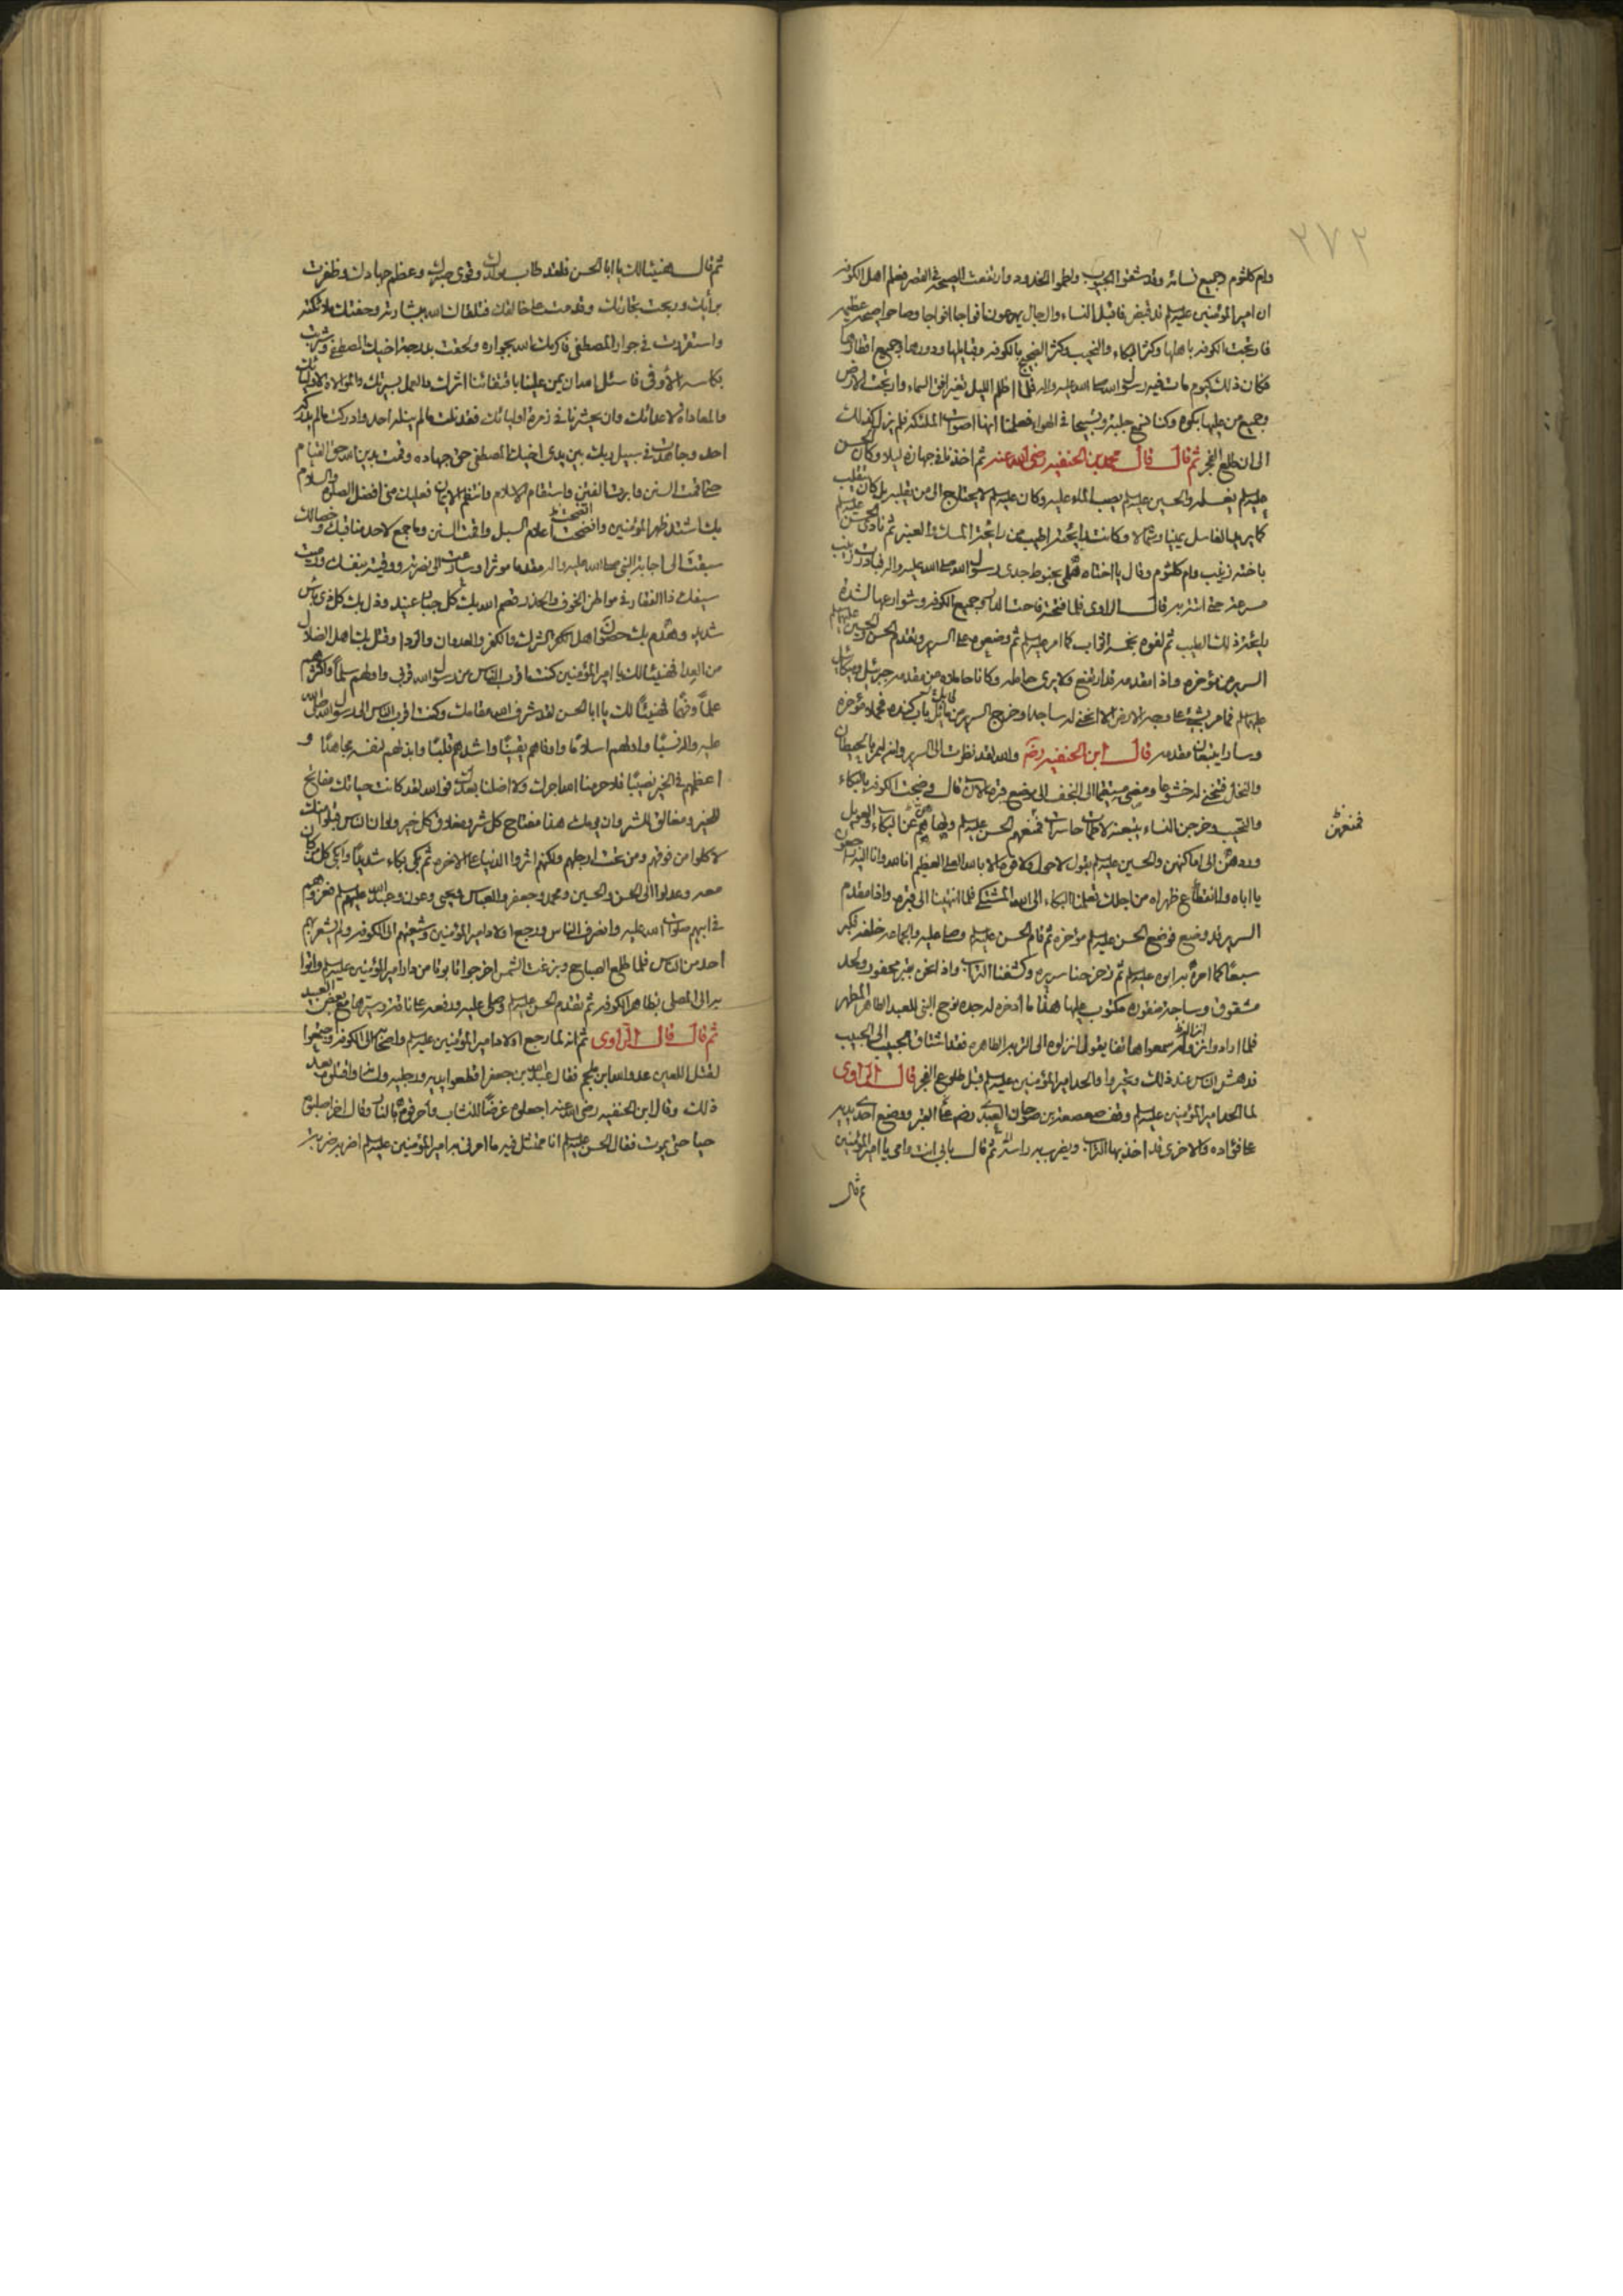 ٢٧٢
وام كلثوم وجميع نسائه وقد شققوا الجيوب ولطموا الخدود وارتفعت الصيحة في القصر فعلم اهل الكوفة
ان امير المؤمنين عليه السلم قد قبض فاقبل النساء والرجال يهرعون افواجا افواجا وصاحوا صيحة عظيمة
فارتجت الكوفة باهلها وكثر البكاء والنحيب وكثر الضجيج بالكوفة وقبايلها ودورها وجميع اقطارها
فكان ذلك كيوم مات فيه رسول الله صلى الله عليه واله فلما اظلم الليل تغير افق السماء وارتجت الارض
وجميع من عليها بكوه وكنا نسمع جلبة وتسبيحا في الهواء فعلمنا انها اصوات الملئكة فلم يزل كذلك
الى ان طلع الفجر ثم قال قال محمد بن الحنفيه رضي الله عنه ثم اخذنا في جهازه ليلا وكان الحسن
عليه السلم يغسله والحسين عليه السلم يصب الماء عليه وكان عليه السلم لا يحتاج الى من يقلبه بل كان يتقلب
كما يريد الغاسل يمينا وشمالا وكانت رايحته اطيب من رايحة المسك والعنبر ثم نادى الحسن عليه السلم
باخته زينب وام كلثوم وقال يا اختاه هلمي بحنوط جدي رسول الله صلى الله عليه واله فبادرت زينب
مسرعة حتى اتته به قال الراوي فلما فتحته فاحت الدار وجميع الكوفة وشوارعها لشدة
رايحة ذلك الطيب ثم لفوه بخمسة اثواب كما امر عليه السلم ثم وضعوه على السرير وتقدم الحسن والحسين عليهما السلم
السرير من مؤخره واذا مقدمه قد ارتفع ولا يرى حامله وكانا حاملاه من مقدمه جبرئيل وميكائيل
عليهما السلم فما مر بشيء على وجه الارض الا انحنى له ساجدا وخرج السرير من مايل باب كنده فحملا مؤخره
وسارا يتبعان مقدمه قال ابن الحنفيه رضه والله لقد نظرت الى السرير وانه ليمر بالحيطان
والنخل فتنحني له خشوعا ومضى مستقيما الى النجف الى موضع قبره الان قال وضجت الكوفة بالبكاء
والنحيب وخرجن النساء يتبعنه لاطمات حاسرات فمنعهم الحسن عليه السلم ونهاهم عن البكاء والعويل
فمنعهن
وردهن الى اماكنهن والحسين عليه السلم يقول لا حول ولا قوة الا بالله العلي العظيم انا لله وانا اليه راجعون
يا اباه وا انقطاع ظهراه من اجلك تعلمنا البكاء الى الله المشتكى فلما انتهينا الى قبره واذا مقدم
السرير قد وضع فوضع الحسن عليه السلم مؤخره ثم قام الحسن عليه السلم وصلى عليه والجماعة خلفه فكبر
سبعا كما امره به ابوه عليه السلم ثم زحزحنا سريره وكشفنا التراب واذا نحن بقبر محفور ولحد
مشقوق وساجة منقورة مكتوب عليها هذا ما ادخره له جده نوح النبي للعبد الطاهر المطهر
فلما ارادوا نزوله سمعوا هاتفا يقول انزلوه الى التربة الطاهره فقد اشتاق الحبيب الى الحبيب
فدهش الناس عند ذلك وتحيروا والحد امير المؤمنين عليه السلم قبل طلوع الفجر قال الراوى
لما الحد امير المؤمنين عليه السلم وقف صعصعة بن صوحان العبدي رضه على القبر ووضع احدى يديه
على فؤاده والاخرى قد اخذ بها التراب ويضرب به راسه ثم قال بابي انت وامي يا امير المؤمنين
ثم قال
ثم قال هنيئا لك يا ابا الحسن فلقد طاب مولدك وقوي صبرك وعظم جهادك وظفرت
برأيك وربحت تجارتك وقدمت على خالقك فتلقاك الله ببشارته وحفتك ملائكته
واستقررت في جوار المصطفى فاكرمك الله بجواره ولحقت بدرجة اخيك المصطفى وشربت
بكاسه الاوفى فاسئل الله ان يمن علينا باقتفائنا اثرك والعمل بسيرتك والموالاة لاوليائك
والمعاداة لاعدائك وان يحشرنا في زمرة اوليائك فقد نلت ما لم ينله احد وادركت ما لم يدركه
احد وجاهدت في سبيل ربك بين يدي اخيك المصطفى حق جهاده وقمت بدين الله حق القيام
حتى اقمت السنن وابرت الفتن واستقام الاسلام وانتظم الايمان فعليك مني افضل الصلوة والسلام
بك اشتد ظهر المؤمنين واتضحت اعلام السبل واقمت السنن وما جمع لاحد مناقبك وخصالك
سبقت الى اجابة النبي صلى الله عليه واله مقدما موثرا وسارعت الى نصرته ووقيته بنفسك ورميت
سيفك ذا الفقار في مواطن الخوف والحذر قصم الله بك كل جبار عنيد وذل بك كل ذي بأس
شديد وهدم بك حصون اهل الكفر الشرك والكفر والعدوان والردا وقتل بك اهل الضلال
من العدا فهنيئا لك يا امير المؤمنين كنت اقرب الناس من رسول الله قربى واولهم سلما واكثرهم
علما وفهما فهنيئا لك يا ابا الحسن لقد شرف الله مقامك وكنت اقرب الناس الى رسول الله صلى الله
عليه واله نسبا واولهم اسلاما واوفاهم يقينا واشدهم قلبا وابذلهم لنفسه مجاهدا و
اعظمهم في الخير نصيبا فلا حرمنا الله اجرك ولا اضلنا بعدك فوالله لقد كانت حياتك مفاتح
للخير ومغالق للشر وان يومك هذا مفتاح كل شر ومغلاق كل خير ولو ان الناس قبلوا منك
لاكلوا من فوقهم ومن تحت ارجلهم ولكنهم اثروا الدنيا على الاخره ثم بكى بكاء شديدا وابكى كل من كان
معه وعدلوا الى الحسن والحسين ومحمد وجعفر والعباس ويحيى وعون وعبد الله عليهم السلم فعزوهم
في ابيهم صلوات الله عليه وانصرف الناس ورجع اولاد امير المؤمنين وشيعتهم الى الكوفه ولم يشعر بهم
احد من الناس فلما طلع الصباح وبزغت الشمس اخرجوا تابوتا من دار امير المؤمنين عليه السلم واتوا
به الى المصلى بظاهر الكوفه ثم تقدم الحسن عليه السلم وصلى عليه ورفعه على ناقة وسيرها مع بعض العبيد
ثم قال قال الراوى ثم انه لما رجع اولاد امير المؤمنين عليه السلم واصحابهم الى الكوفه واجتمعوا
لقتل اللعين عدو الله ابن ملجم فقال عبد الله بن جعفر اقطعوا يديه ورجليه ولسانه واقتلوه بعد
ذلك وقال ابن الحنفيه رضي الله عنه اجعلوه غرضا للنشاب واحرقوه بالنار وقال اخر اصلبوه
حيا حتى يموت فقال الحسن عليه السلم انا ممتثل فيه ما امرني به امير المؤمنين عليه السلم اضربه ضربة